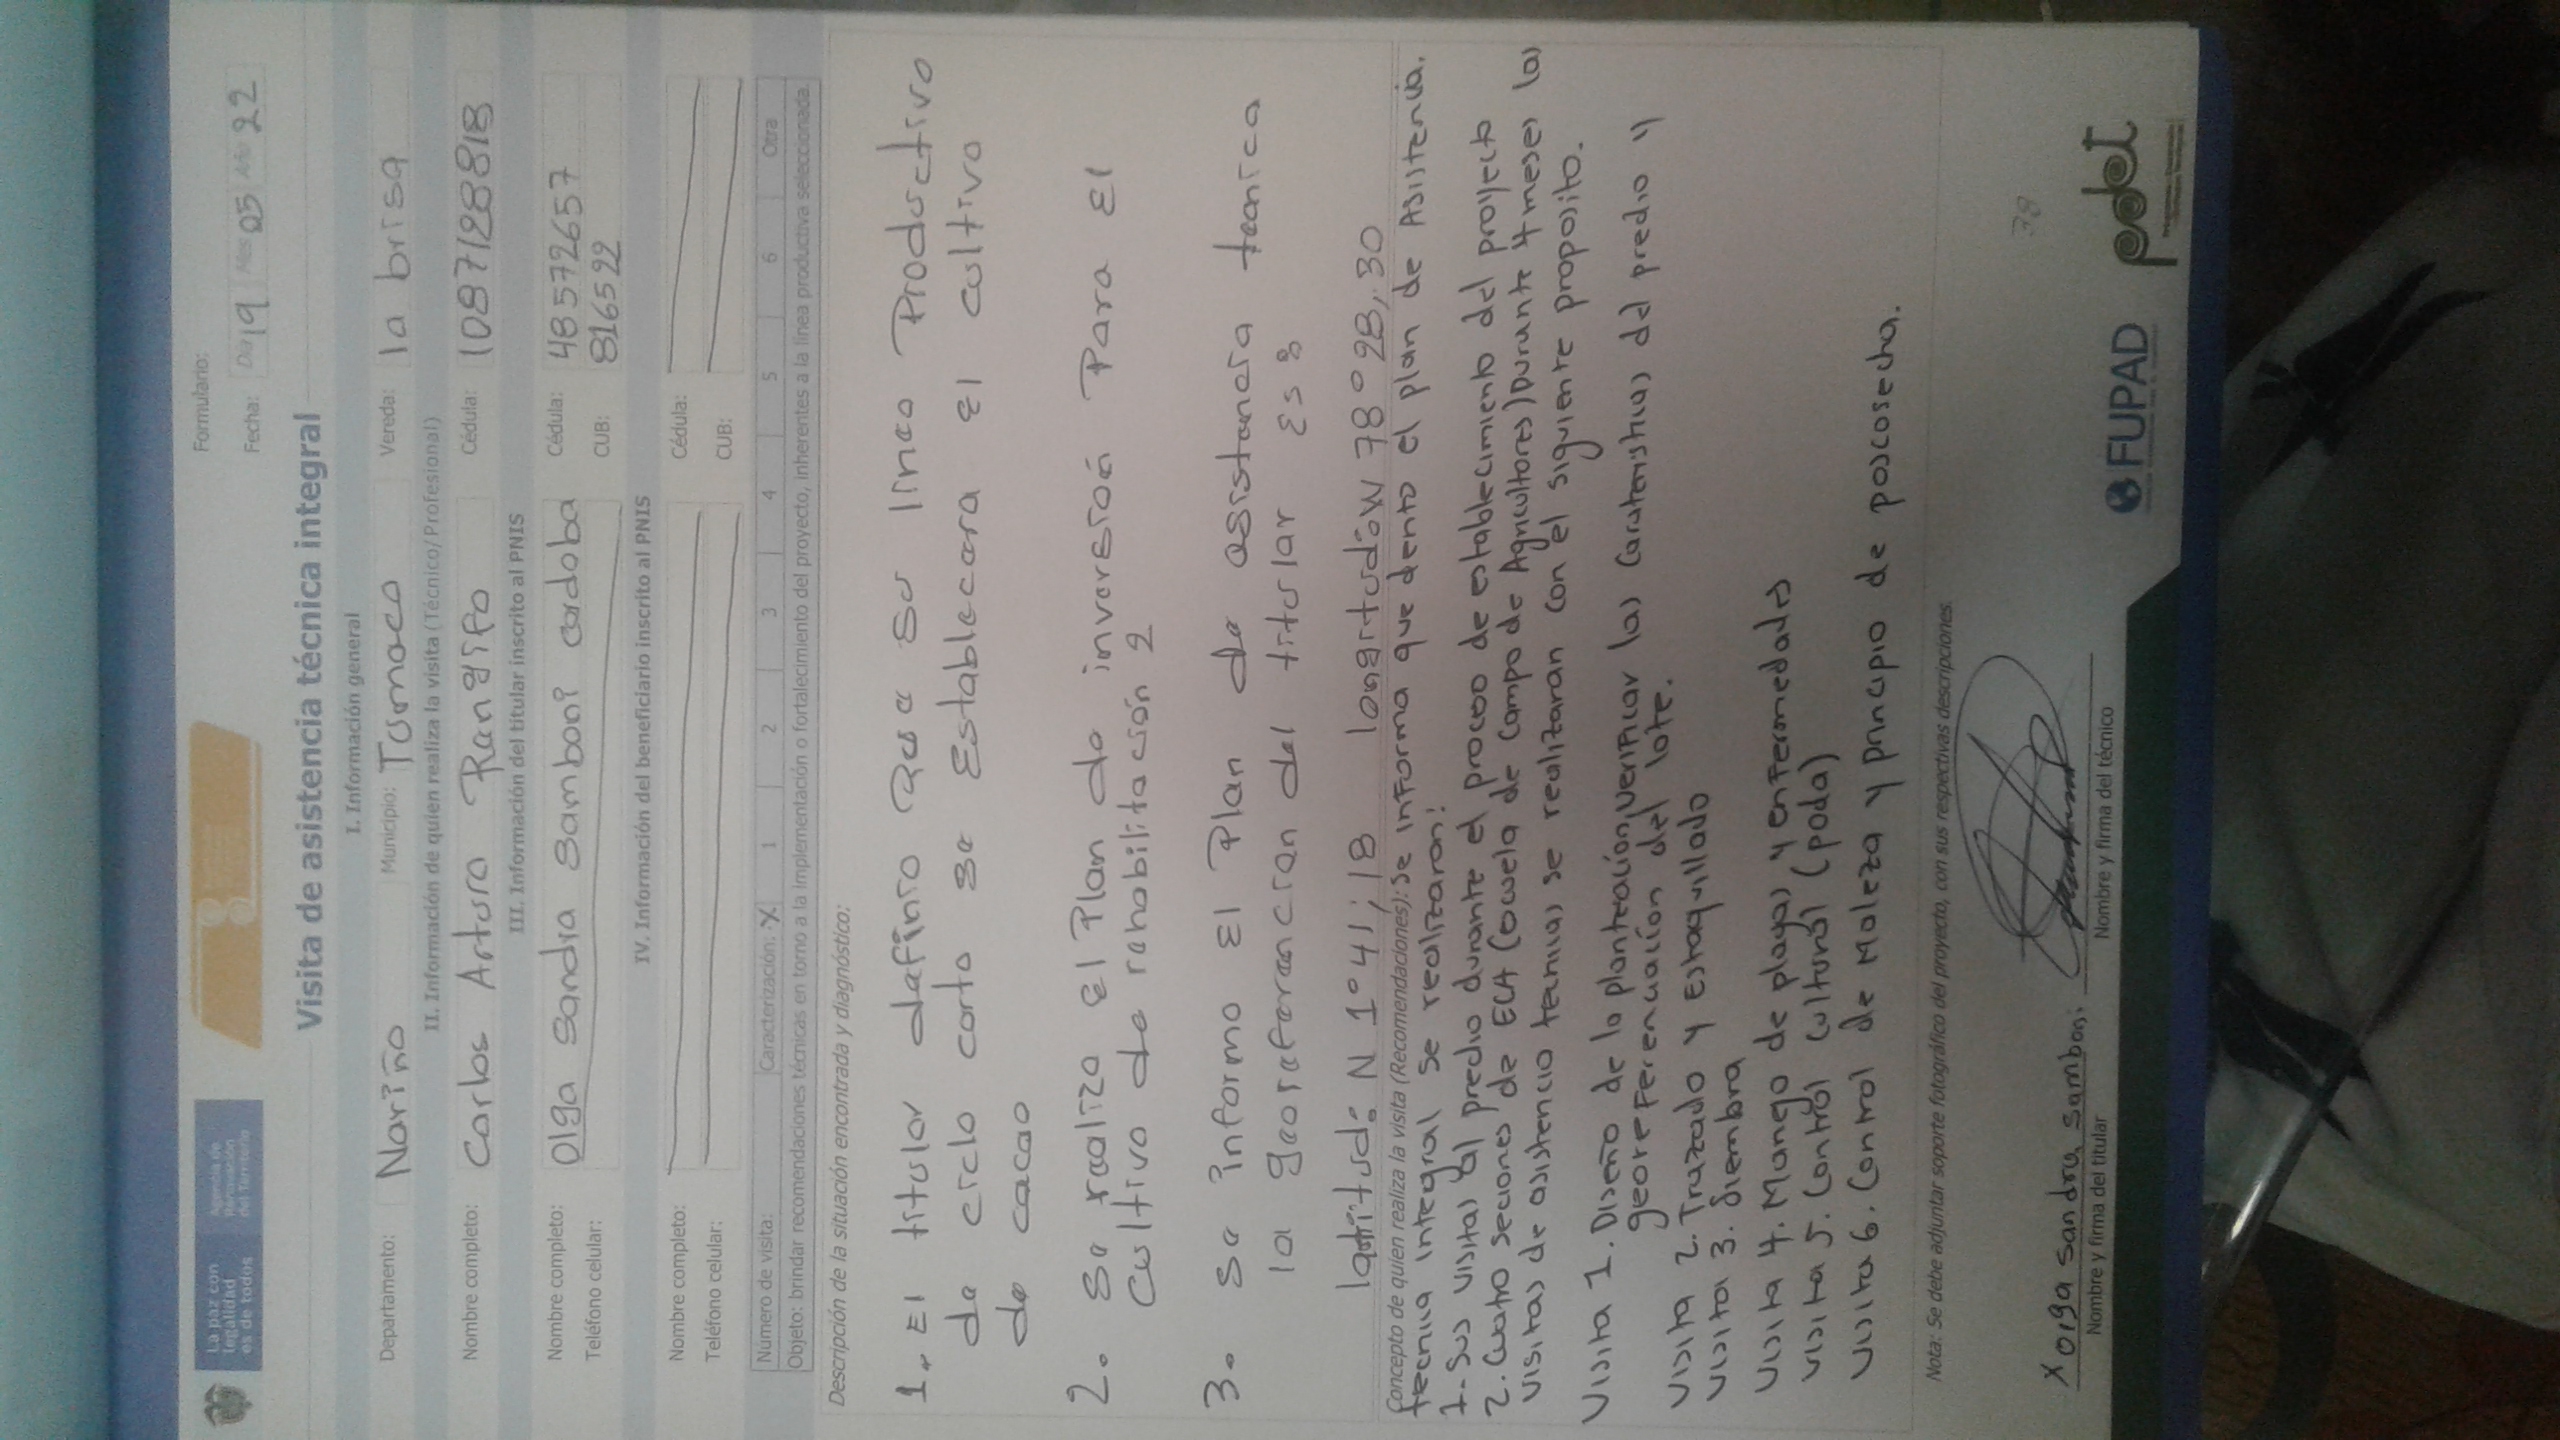 La paz con
legalidad
es de todos
Agencia de
Renovación
del Territorio
Formulario:
Fecha: Día 19 Mes 05 Año 22
Visita de asistencia técnica integral
I. Información general
Departamento: Nariño Municipio: Tumaco Vereda: la brisa
II. Información de quien realiza la visita (Técnico/Profesional)
Nombre completo: Carlos Arturo Rengifo Cédula: 1087128818
III. Información del titular inscrito al PNIS
Nombre completo: Olga Sandra Samboni cordoba Cédula: 48572657
Teléfono celular: CUB: 816522
IV. Información del beneficiario inscrito al PNIS
Nombre completo: Cédula:
Teléfono celular: CUB:
Número de visita: Caracterización: X 1 2 3 4 5 6 Otra
Objeto: brindar recomendaciones técnicas en torno a la implementación o fortalecimiento del proyecto, inherentes a la línea productiva seleccionada.
Descripción de la situación encontrada y diagnóstico:
1. El titular definio que su linea Productiva
de ciclo corto se Establecera El cultivo
de cacao
2. Se realizo El Plan de inversión Para El
Cultivo de rehabilitación 2
3. Se informo El Plan de asistencia tecnica
la georeferencian del titular Es:
latitud: N 1°41;18 longitud: W 78°28,30
Concepto de quien realiza la visita (Recomendaciones): Se informa que dento el plan de Asistencia.
tecnica integral se realizaron:
1- Sus visitas al predio durante el proceso de establecimiento del proyecto
2. Cuatro seciones de ECA (Ecuela de Campo de Agricultores) Durante 4 meses las
visitas de asistencia tecnicas se realizaran con el siguiente proposito.
Visita 1. Diseño de la planteación, verificar las carateristicas del predio y
georeferenciación del lote.
Visita 2. Trazado y Estaquillado
Visita 3. Siembra
Visita 4. Manejo de plagas y enfermedades
Visita 5. Control cultural (poda)
Visita 6. Control de Maleza y principio de poscosecha.
Nota: Se debe adjuntar soporte fotográfico del proyecto, con sus respectivas descripciones.
38
x olga sandra samboni
Nombre y firma del titular
Nombre y firma del técnico
FUPAD
pdet